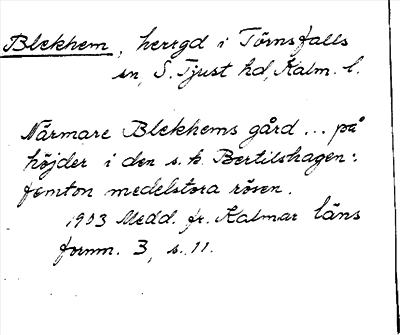 Blekhem, herrgd i Törnsfalls
sn, S. Tjust hd, Kalm. l.
Närmare Blekhems gård ... på
höjder i den s. k. Bertilshagen:
femton medelstora rösen.
1903 Medd. fr. Kalmar läns
fornm. 3, s. 11.